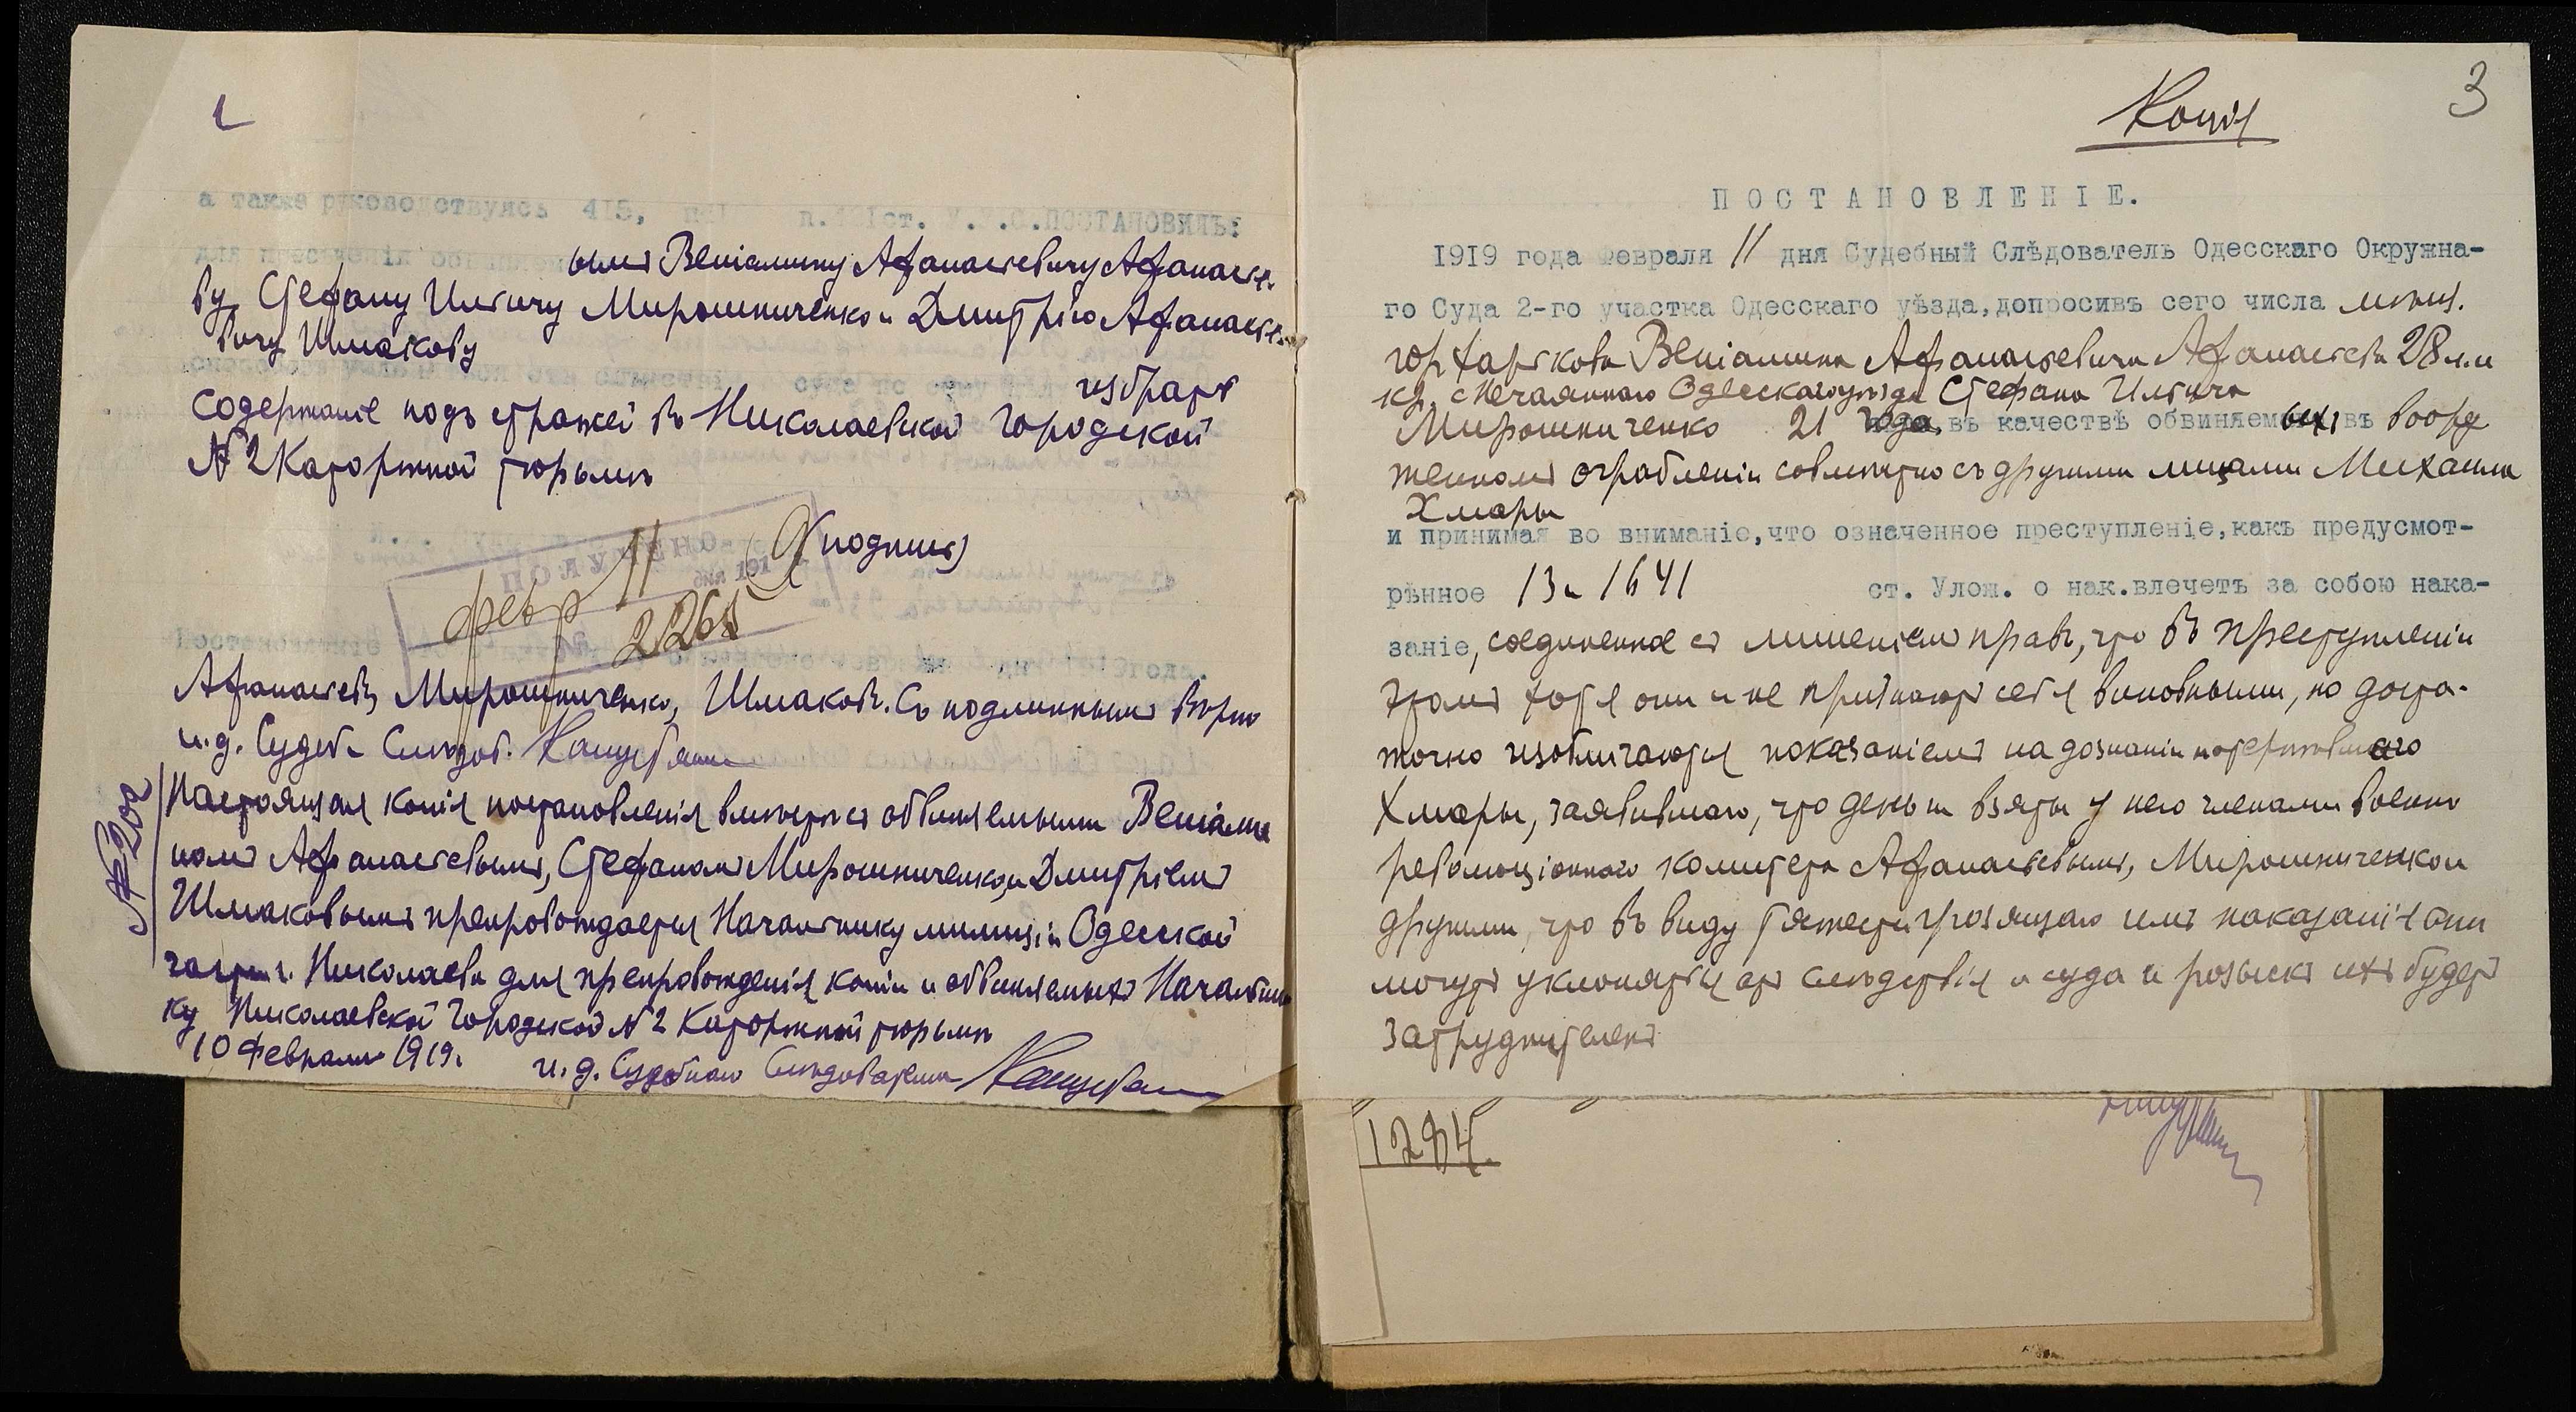 а также руководствуясь 415, п. 421ст. У.У.С.ПОСТАНОВИЛЪ:
для пресѣченія обвиняем ымъ Веніамину Афанасьевичу Афанасье-
ву, Стефану Ильичу Мирошниченко и Дмитрію Афанасье-
вичу Шмакову
избрать
содержаніе подъ стражей въ Николаевской городской
№ 2 Каторжной тюрьмѣ
(подписи)
ПОЛУЧЕНО
февр 11 дня 191
2265
Постановленіе года.
Афанасьевъ, Мирошниченко, Шмаковъ. Съ подлиннымъ вѣрно
и.д. Судебн Слѣдов.
№ 200
Настоящая копія постановленія вмѣстѣ съ обвиняемыми Веніами
номъ Афанасьевымъ, Стефаномъ Мирошниченко и Дмитріемъ
Шмаковымъ препровождается Начальнику милиціи Одесской
части г. Николаева для препровожденія копіи и обвиняемыхъ Начальни
ку Николаевской городской № 2 Каторжной тюрьмы
10 Февраля 1919.
и. д. Судебнаго Слѣдователя
3
Копія
ПОСТАНОВЛЕНІЕ.
1919 года Февраля 11 дня Судебный Слѣдователь Одесскаго Окружна-
го Суда 2-го участка Одесскаго уѣзда,допросивъ сего числа мѣщ.
гор Харькова Веніамина Афанасьевича Афанасьева 28 л. и
кр. с Нечаяннаго Одесскаго уѣзда Стефана Ильича
Мирошниченко 21 года, въ качествѣ обвиняемыхъ въ воору
женномъ ограбленіи совмѣстно съ другими лицами Михаила
Хмары
и принимая во вниманіе,что означенное преступленіе,какъ предусмот-
рѣнное 13 и 1641 ст. Улож. о нак.влечетъ за собою нака-
заніе, соединенное съ лишеніемъ правъ, что въ преступленіи
этомъ хотя они и не признаютъ себя виновными, но доста-
точно изобличаются показаніемъ на дознаніи потерпѣвшаго
Хмары, заявившаго, что деньги взяты у него членами военно
революціоннаго комитета Афанасьевымъ, Мирошниченкой и
другими, что въ виду тяжести грозящаго имъ наказанія они
могутъ уклониться отъ слѣдствія и суда и розыскъ ихъ будетъ
затруднителенъ
1284.